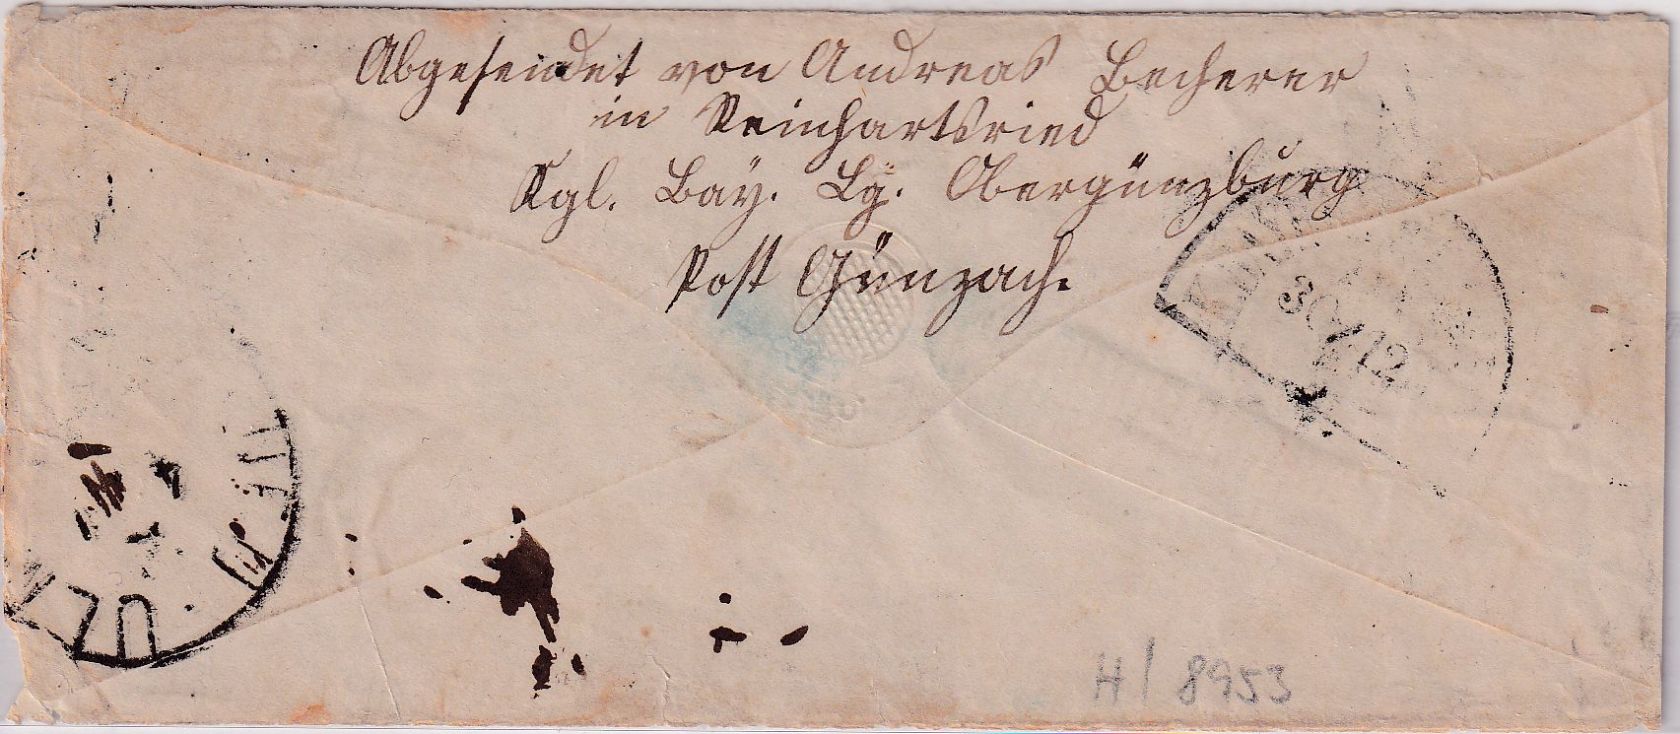 Abgesendet von Andreas Becherer
in Reinhartsried
Kgl. Bay. Lg. Obergünzburg
Post Günzach.
30/12
H/ 8953